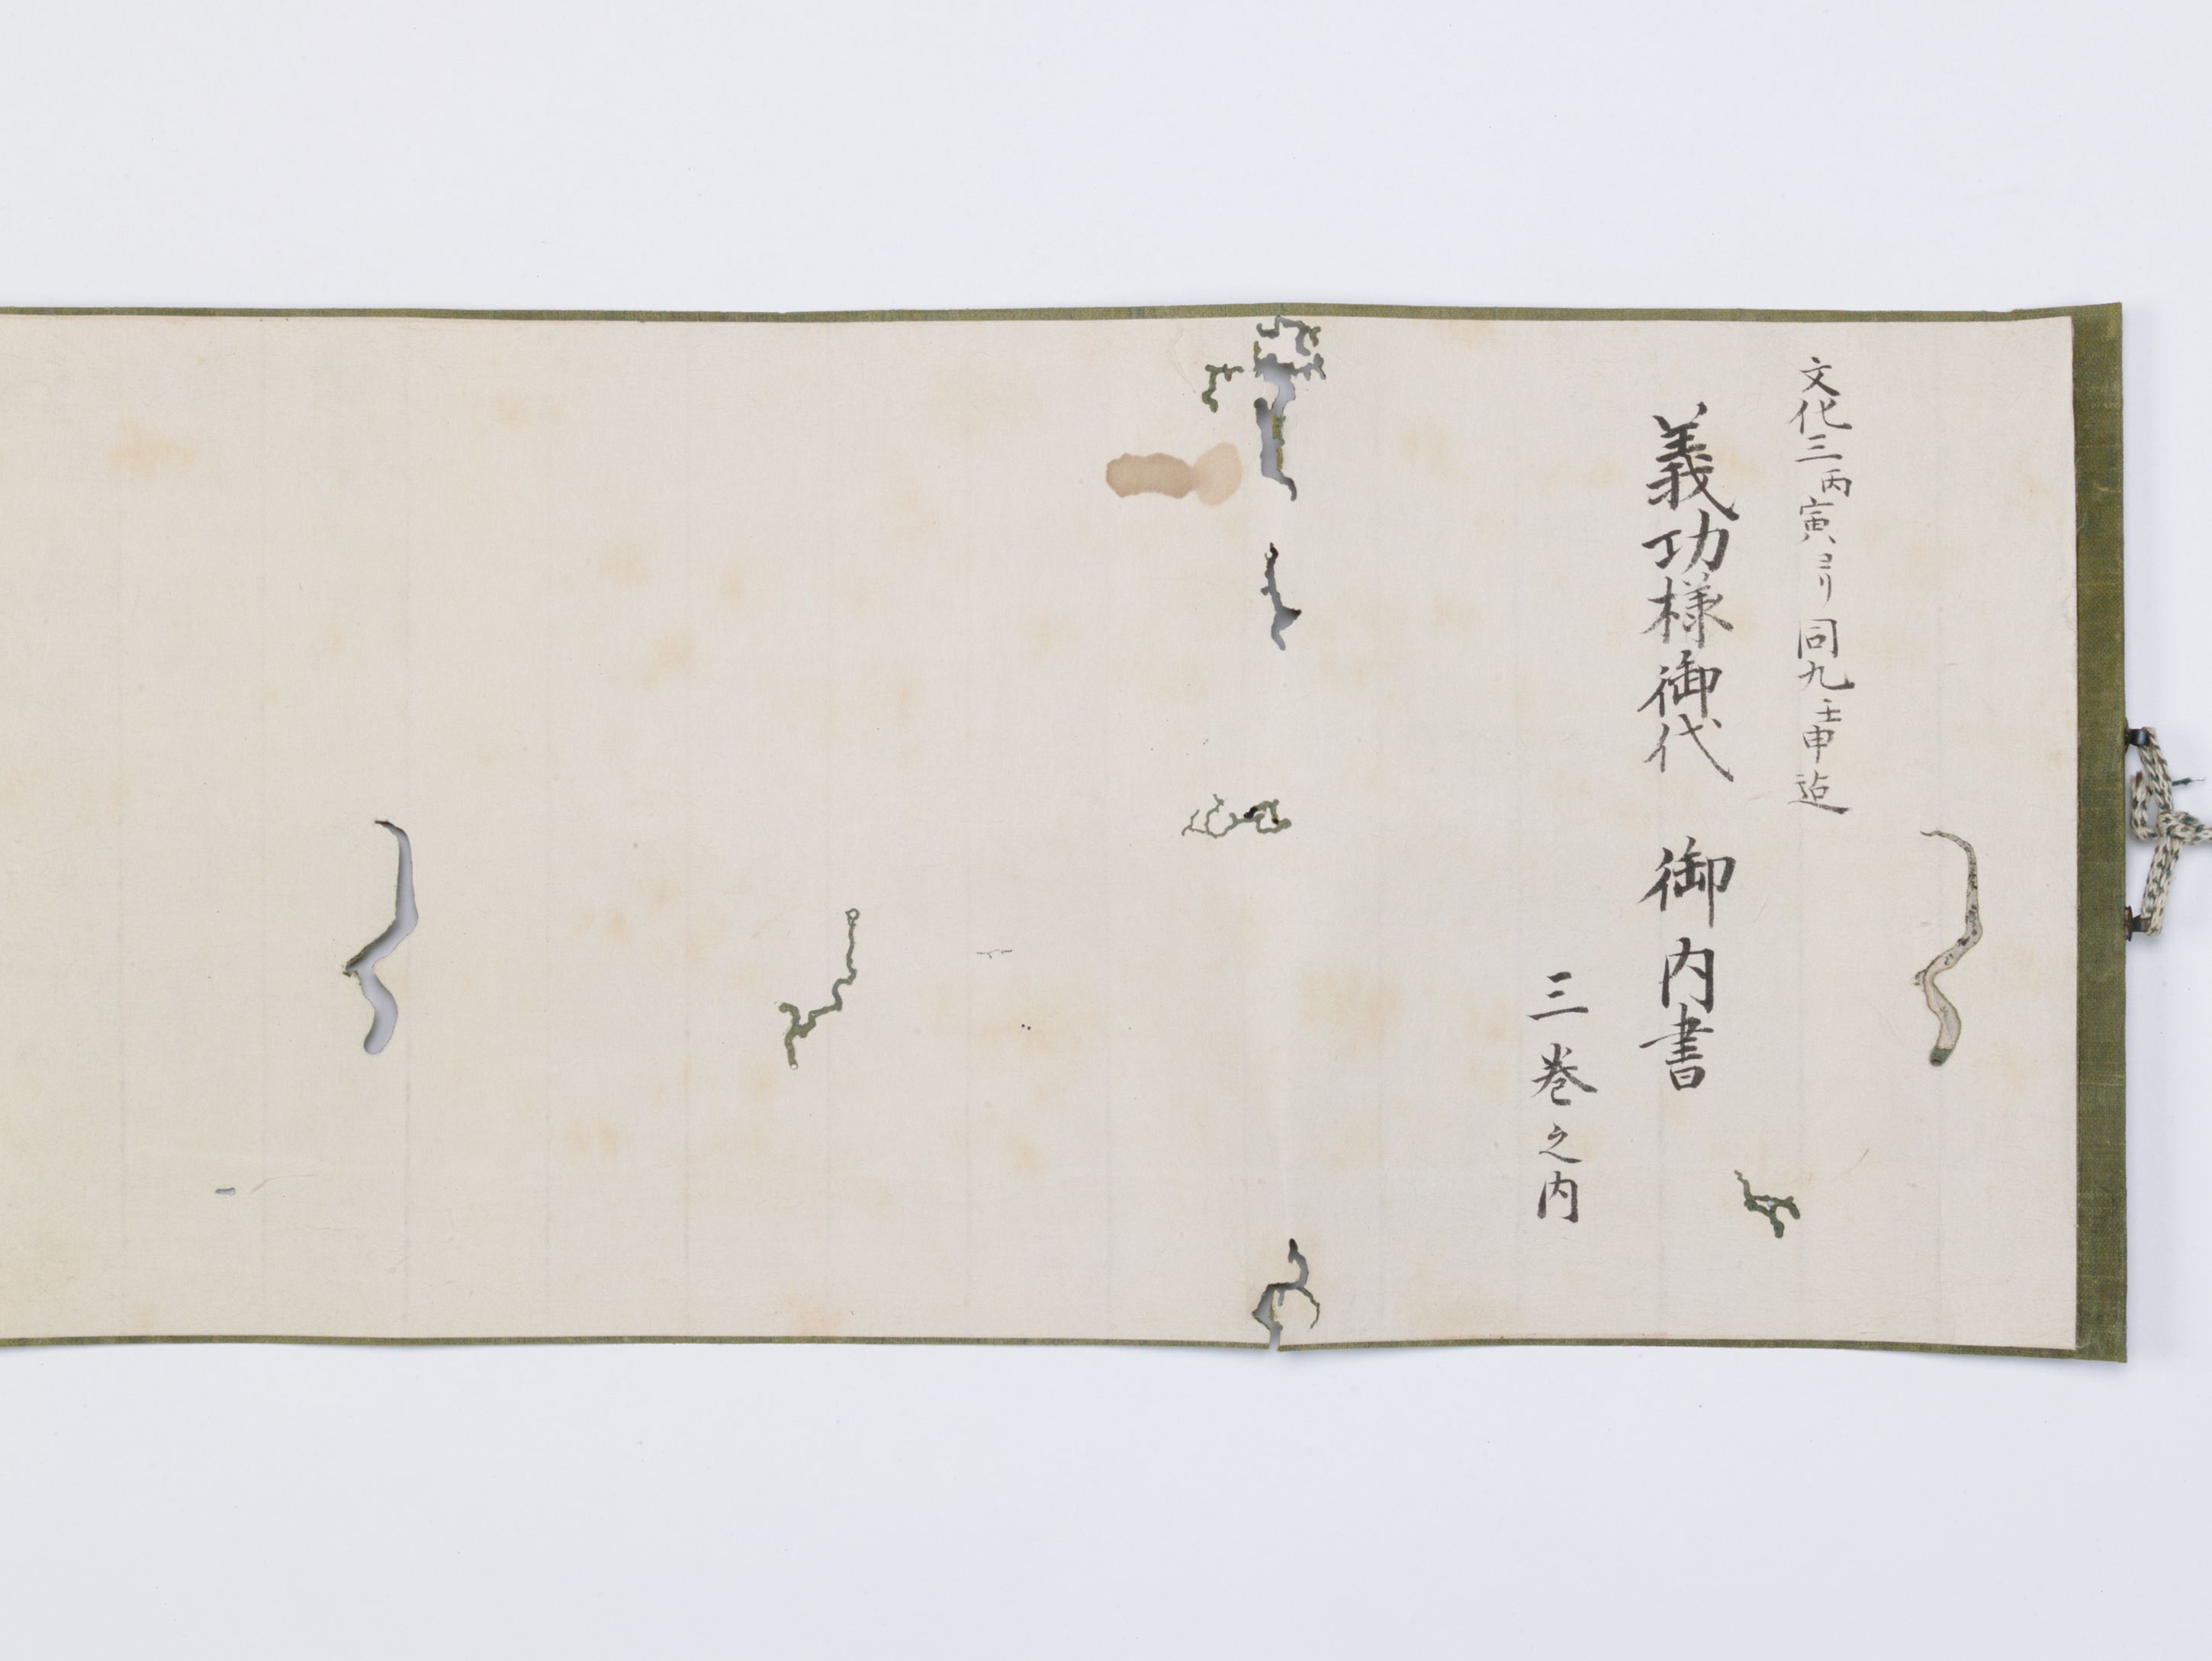 文化三丙寅ヨリ同九壬申迄
義功様御代　御内書
三巻之内